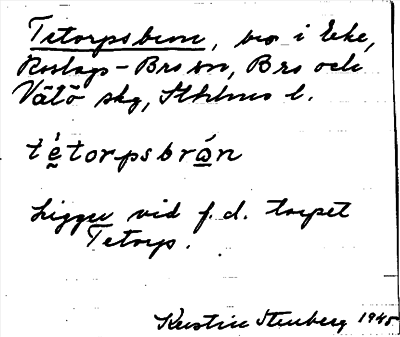 Tetorpsbron, bro i Eke,
Roslags-Bro sn, Bro och
Vätö skg, Sthlms l.
tétorpsbrón
Ligger vid f.d. torpet
Tetorp.
Kerstin Stenberg 1945